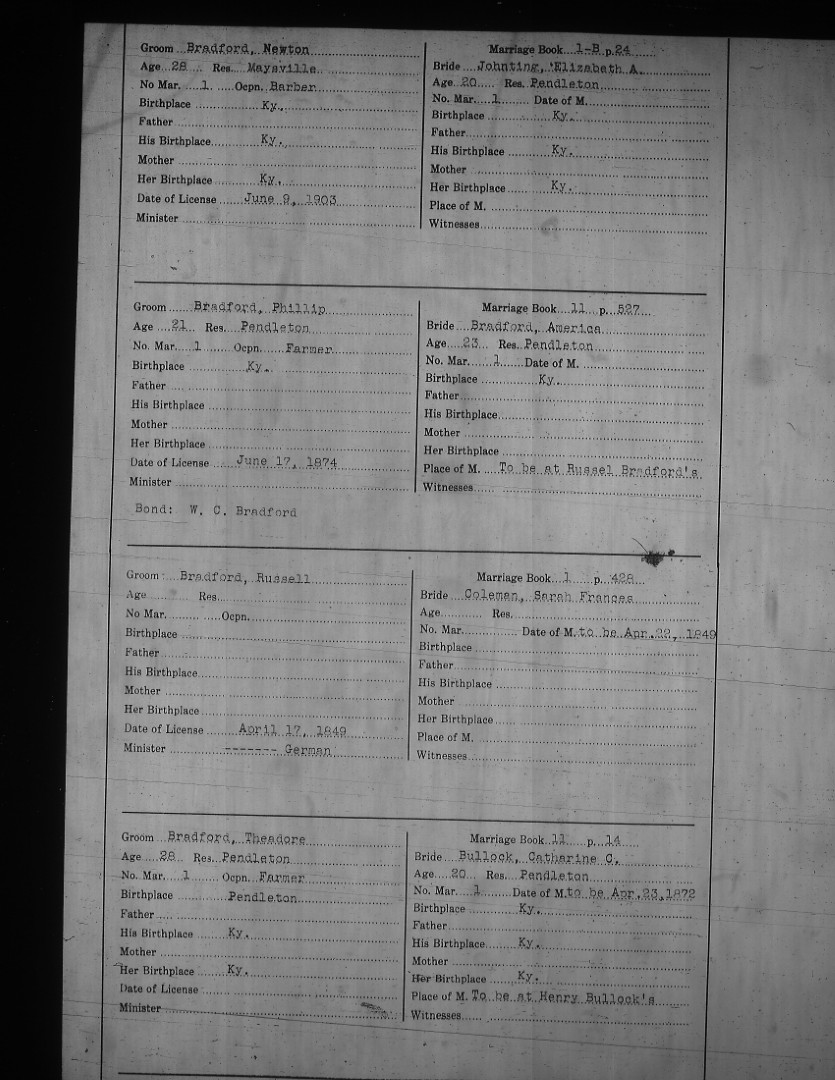 Groom Bradford, Newton
Age 28 Res. Maysville
No Mar. 1. Ocpn. Barber
Birthplace Ky.
Father
His Birthplace Ky.
Mother
Her Birthplace Ky.
Date of License June 9, 1903
Minister
Marriage Book 1-B p. 24
Bride Johnting, Elizabeth A.
Age 20 Res. Pendleton
No. Mar. 1 Date of M.
Birthplace Ky.
Father
His Birthplace Ky.
Mother
Her Birthplace Ky.
Place of M.
Witnesses
Groom Bradford, Phillip
Age 21 Res. Pendleton
No. Mar. 1 Ocpn. Farmer
Birthplace Ky.
Father
His Birthplace
Mother
Her Birthplace
Date of License June 17, 1874
Minister
Bond: W. C. Bradford
Marriage Book 11 p. 527
Bride Bradford, America
Age 23 Res. Pendleton
No. Mar. 1 Date of M.
Birthplace Ky.
Father
His Birthplace
Mother
Her Birthplace
Place of M. To be at Russel Bradford's
Witnesses
Groom Bradford, Russell
Age Res.
No Mar. Ocpn.
Birthplace
Father
His Birthplace
Mother
Her Birthplace
Date of License April 17, 1849
Minister ------- German
Marriage Book 1 p. 428
Bride Coleman, Sarah Frances
Age Res.
No. Mar. Date of M. to be Apr. 22, 1849
Birthplace
Father
His Birthplace
Mother
Her Birthplace
Place of M.
Witnesses
Groom Bradford, Theadore
Age 28 Res. Pendleton
No. Mar. 1 Ocpn. Farmer
Birthplace Pendleton
Father
His Birthplace Ky.
Mother
Her Birthplace Ky.
Date of License
Minister
Marriage Book 11 p. 14
Bride Bullock, Catharine C.
Age 20 Res. Pendleton
No. Mar. 1 Date of M. to be Apr. 23, 1872
Birthplace Ky.
Father
His Birthplace Ky.
Mother
Her Birthplace Ky.
Place of M. To be at Henry Bullock's
Witnesses